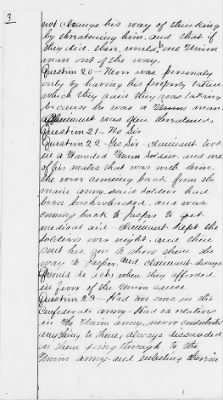 3
not change his way of thinking
by threatening him, and that if
they did. there would be one Union
man out of the way.
Question 20 - Never was personaly
only by having his property taken
which they said they was taking
because he was a Union man.
Claimant was often threatened.
Question 21 - No Sir
Question 22 - No Sir, Claimant took
in a wounded Union Soldier, and one
of his mates that was with him.
he was coming back from the
main army said soldier had
been bushwhacked, and was
coming back to Jasper to get
medical aid Claimant kept the
soldiers over night, and then
sent his son to show them the
way to Jasper, and Claimant always
would do acts when they afforded
in favor of the Union cause
Question 23 - Had no sons in the
Confederate army. Had no relatives
in the Union army, never contributed
anything to them, always dissuaded
going through to the
Union army and enlisting therein